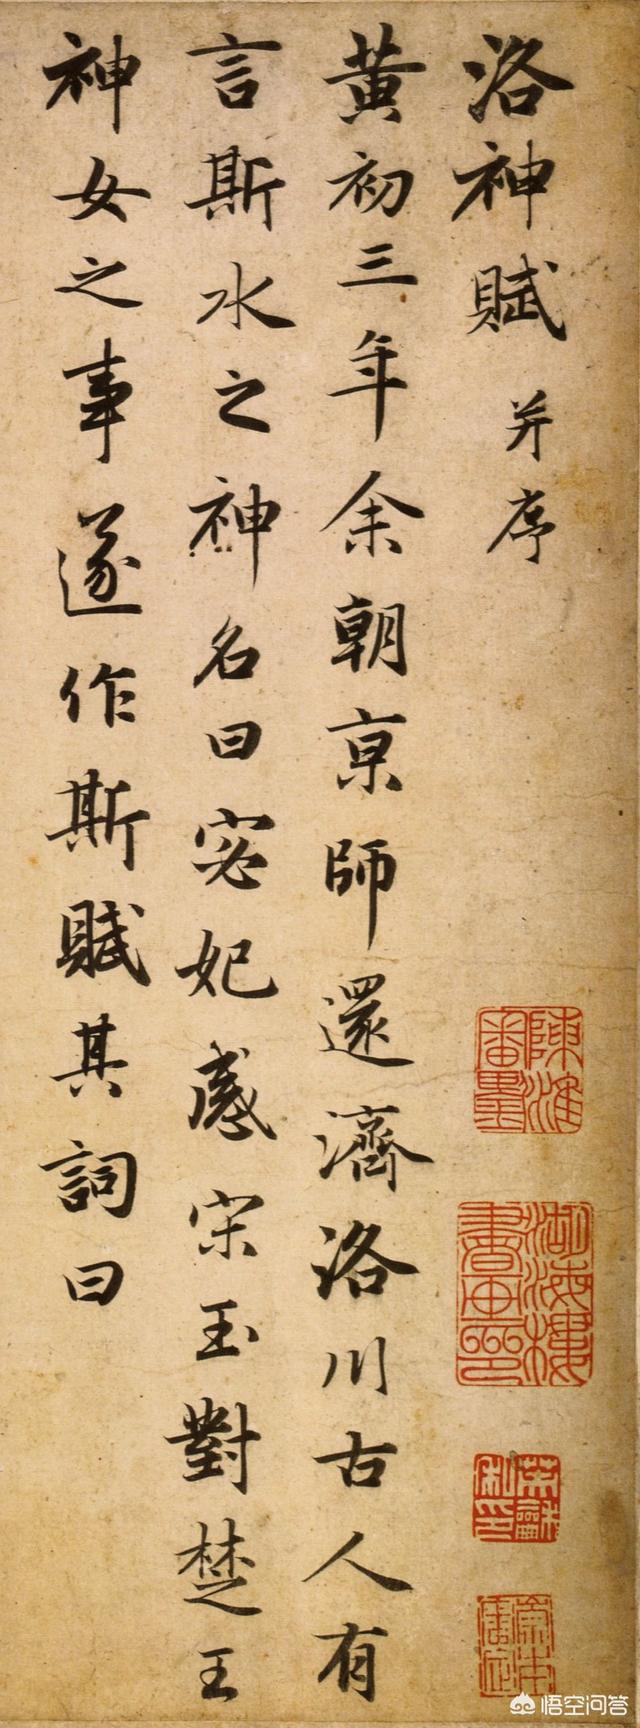 洛神賦 并序
黄初三年余朝京師還濟洛川古人有
言斯水之神名曰宓妃感宋玉對楚王
神女之事遂作斯賦其詞曰
陳淮
湖海樓
書画印
悟空问答